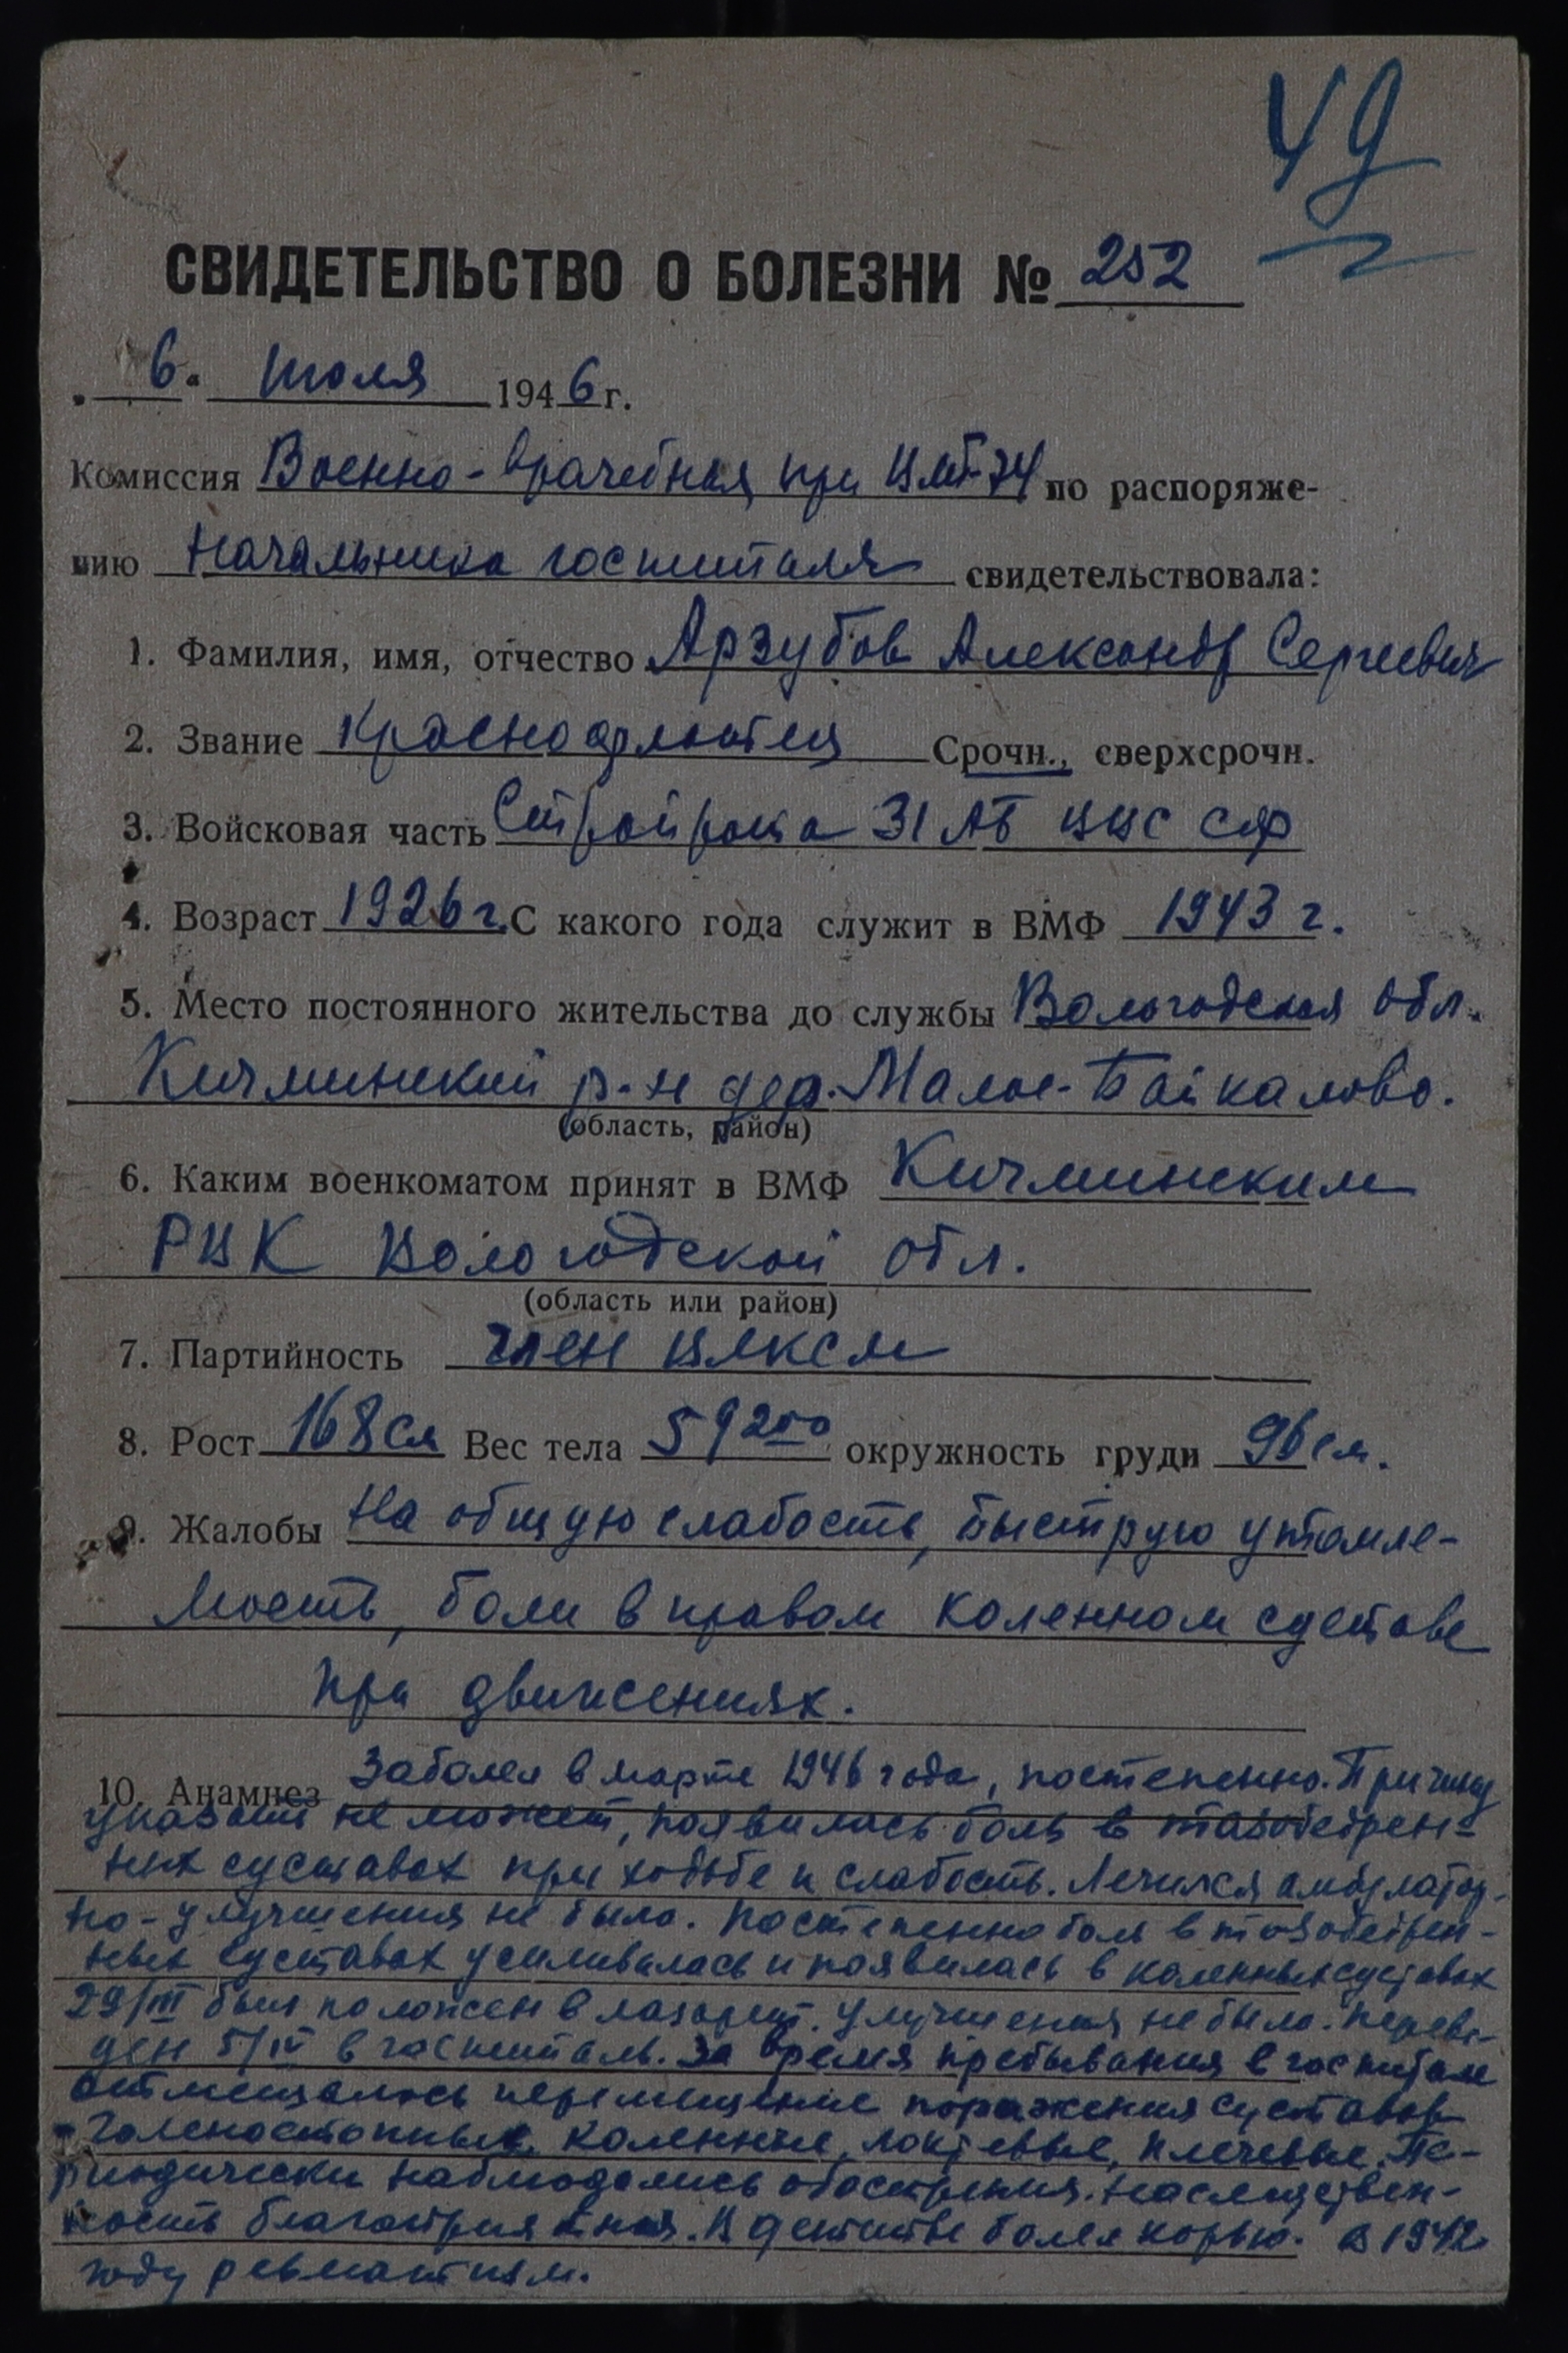 49
СВИДЕТЕЛЬСТВО О БОЛЕЗНИ № 252
"6" июля 1946 г.
Комиссия Военно-врачебная при ВМГ-74 по распоряже-
нию Начальника госпиталя свидетельствовала:
1. Фамилия, имя, отчество Арзубов Александр Сергеевич
2. Звание Краснофлотец Срочн., сверхсрочн.
3. Войсковая часть Стройрота 31 АБ ВВС СФ
4. Возраст 1926 г. С какого года служит в ВМФ 1943 г.
5. Место постоянного жительства до службы Вологодская обл.
Кичминский р-н дер. Малое-Байкалово.
(область, район)
6. Каким военкоматом принят в ВМФ Кичминским
РВК Вологодской обл.
(область или район)
7. Партийность член ВЛКСМ
8. Рост 168 см Вес тела 59200 окружность груди 96 см.
9. Жалобы На общую слабость, быструю утомляе-
мость, боли в правом коленном суставе
при движениях.
10. Анамнез Заболел в марте 1946 года, постепенно. Причину
указать не может, появилась боль в тазобедрен-
ных суставах при ходьбе и слабость. Лечился амбулатор-
но - улучшения не было. Постепенно боль в тазобедрен-
ных суставах усиливалась и появилась в коленных суставах
29/III был положен в лазарет. Улучшения не было. Переве-
ден 5/IV в госпиталь. За время пребывания в госпитале
отмещалось перемещение поражения суставов
- голеностопные, коленные, локтевые, плечевые. Пе-
риодически наблюдались обострения. Наследствен-
ность благоприятная. В детстве болел корью. В 1942
году ревматизм.